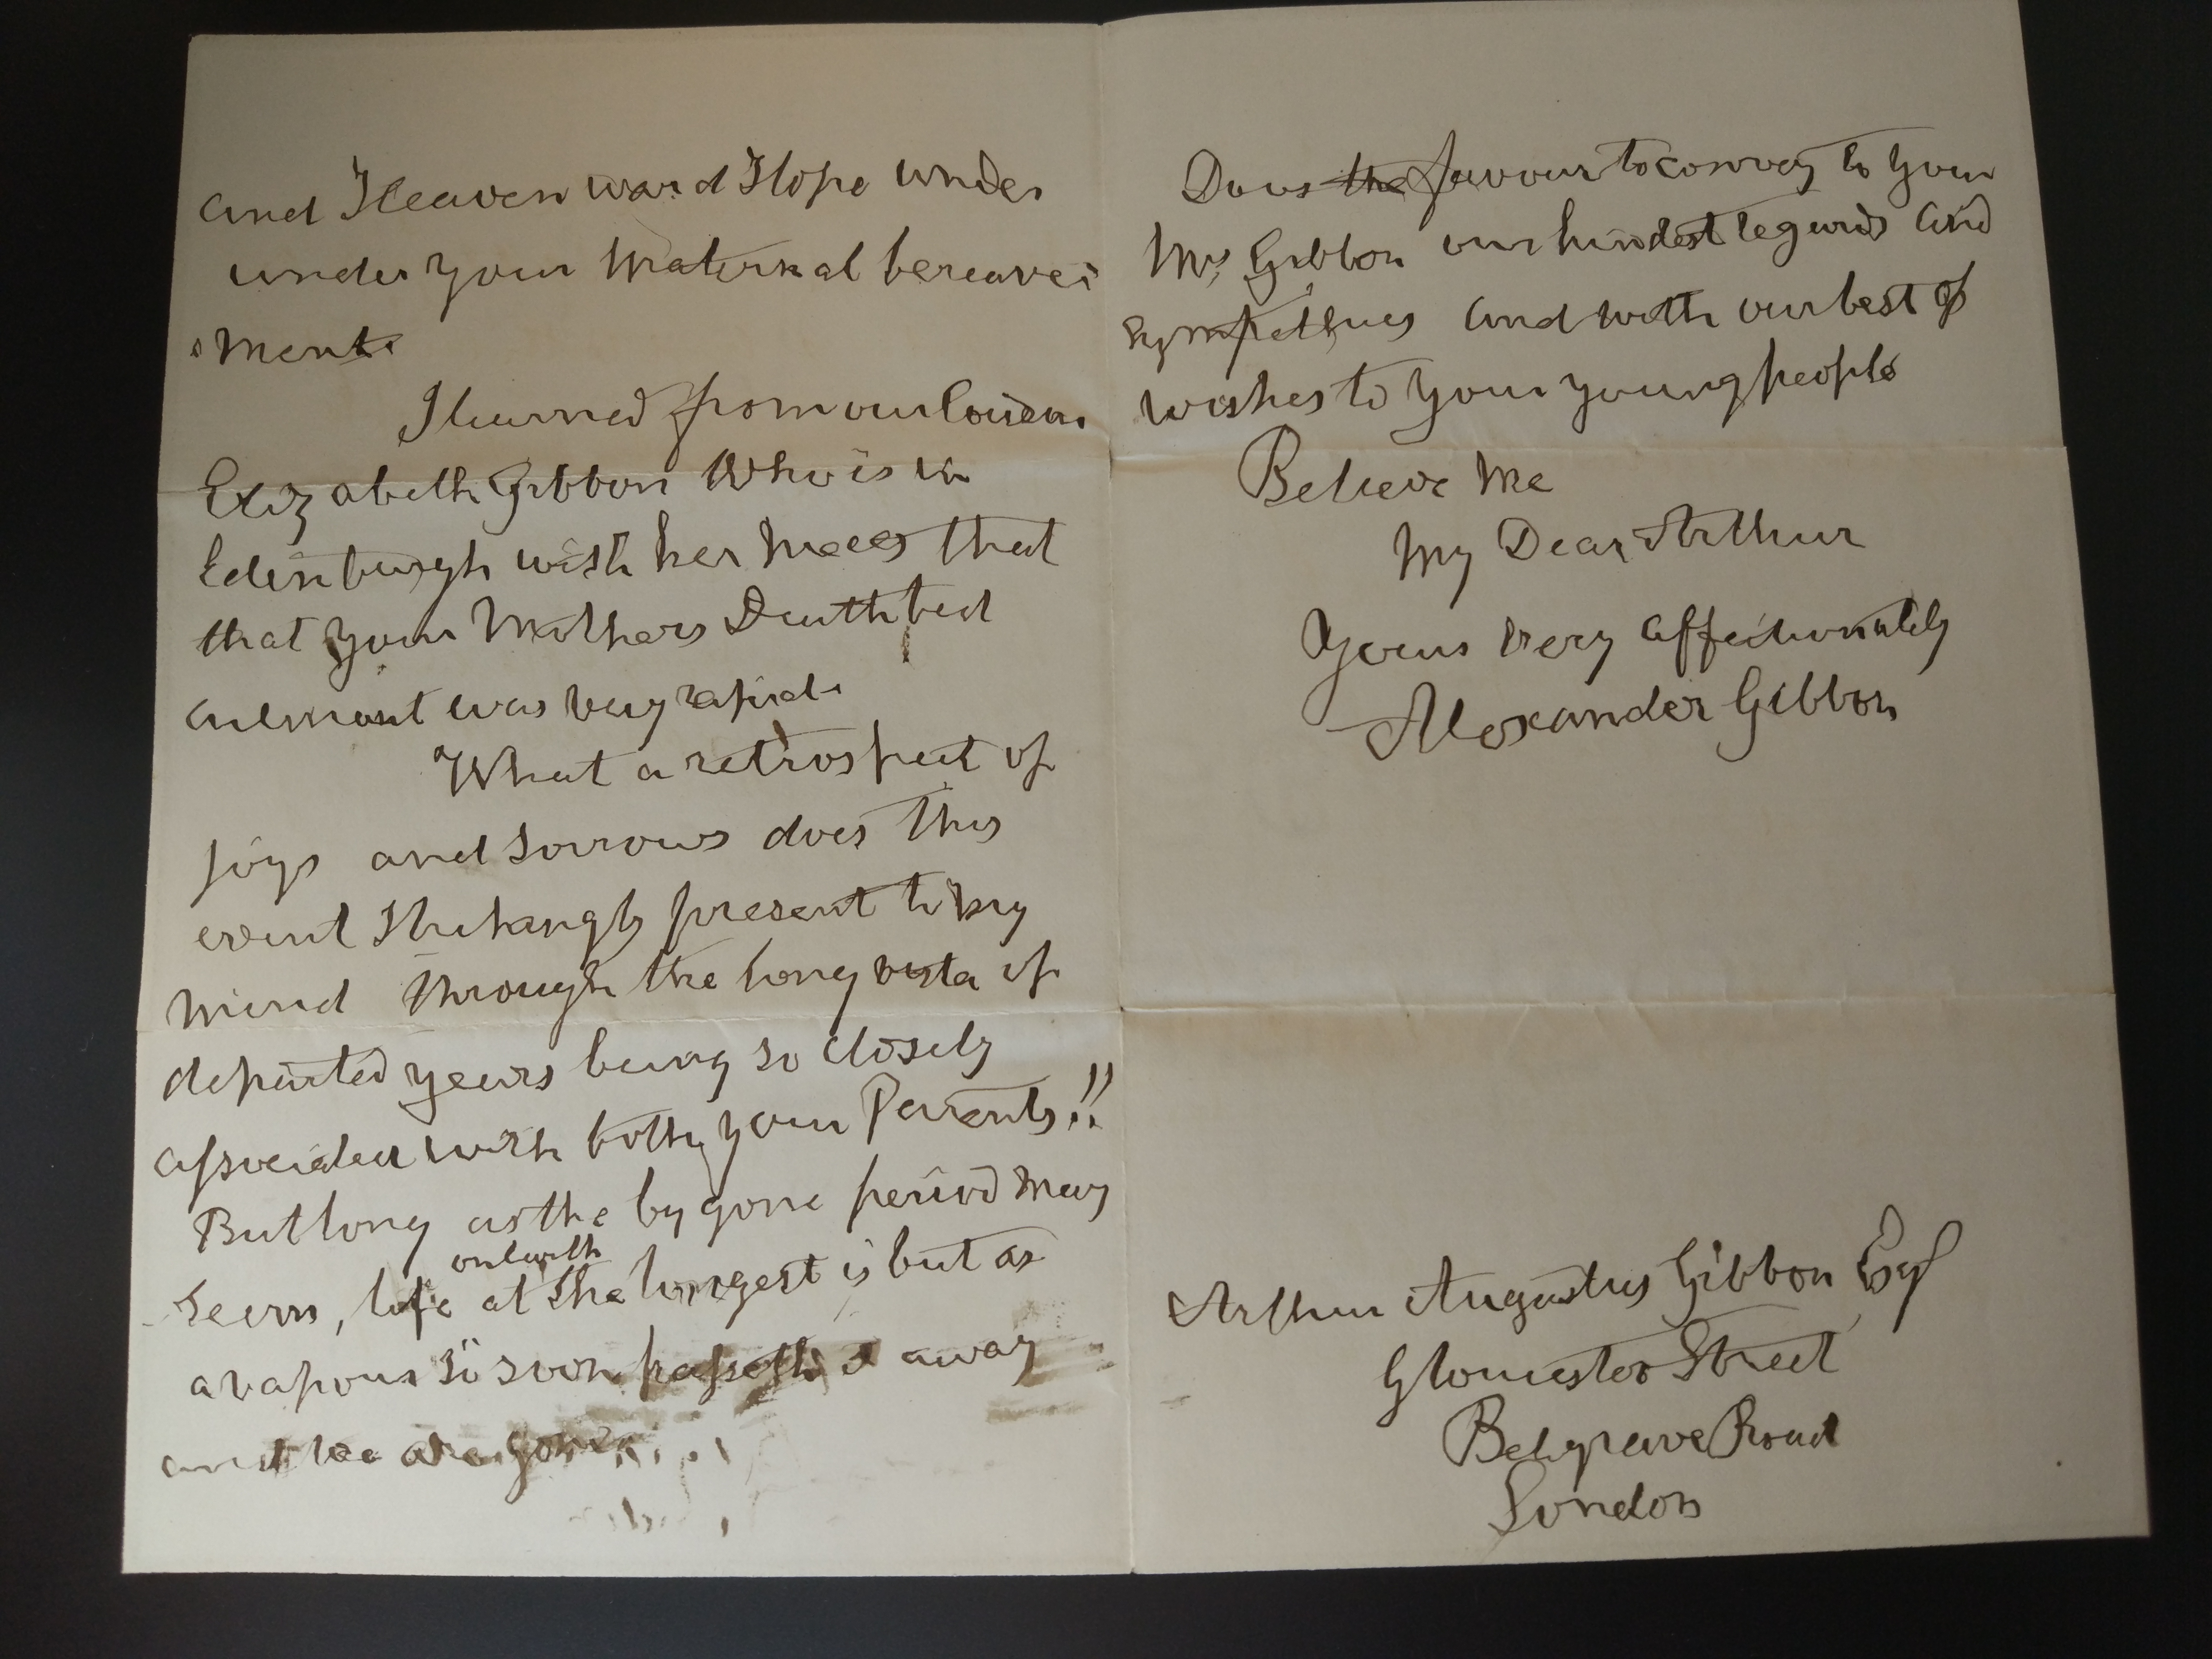 and Heavenward Hope under
under your Maternal bereave:
:ment.
I learned from our Cousin
Elizabeth Gibbon who is in
Edinburgh with her that
that your Mothers Death bed
was very rapid.
What a retrospect of
joys and Sorrows does this
event Strikingly present to my
mind through the long vista of
departed years being so closely
associated with both your Parents!!
But long as the by gone period may
Seem, life on earth at the longest is but as
a vapour so soon passeth it away
and we are gone
Do us the favour to convey to your
Mrs Gibbon our kindest regards and
Sympathies and with our best of
wishes to your young people
Believe Me
My Dear Arthur
Yours Very affectionately
Alexander Gibbon
Arthur Augustus Gibbon Esq
Gloucester Street
Belgrave Road
London